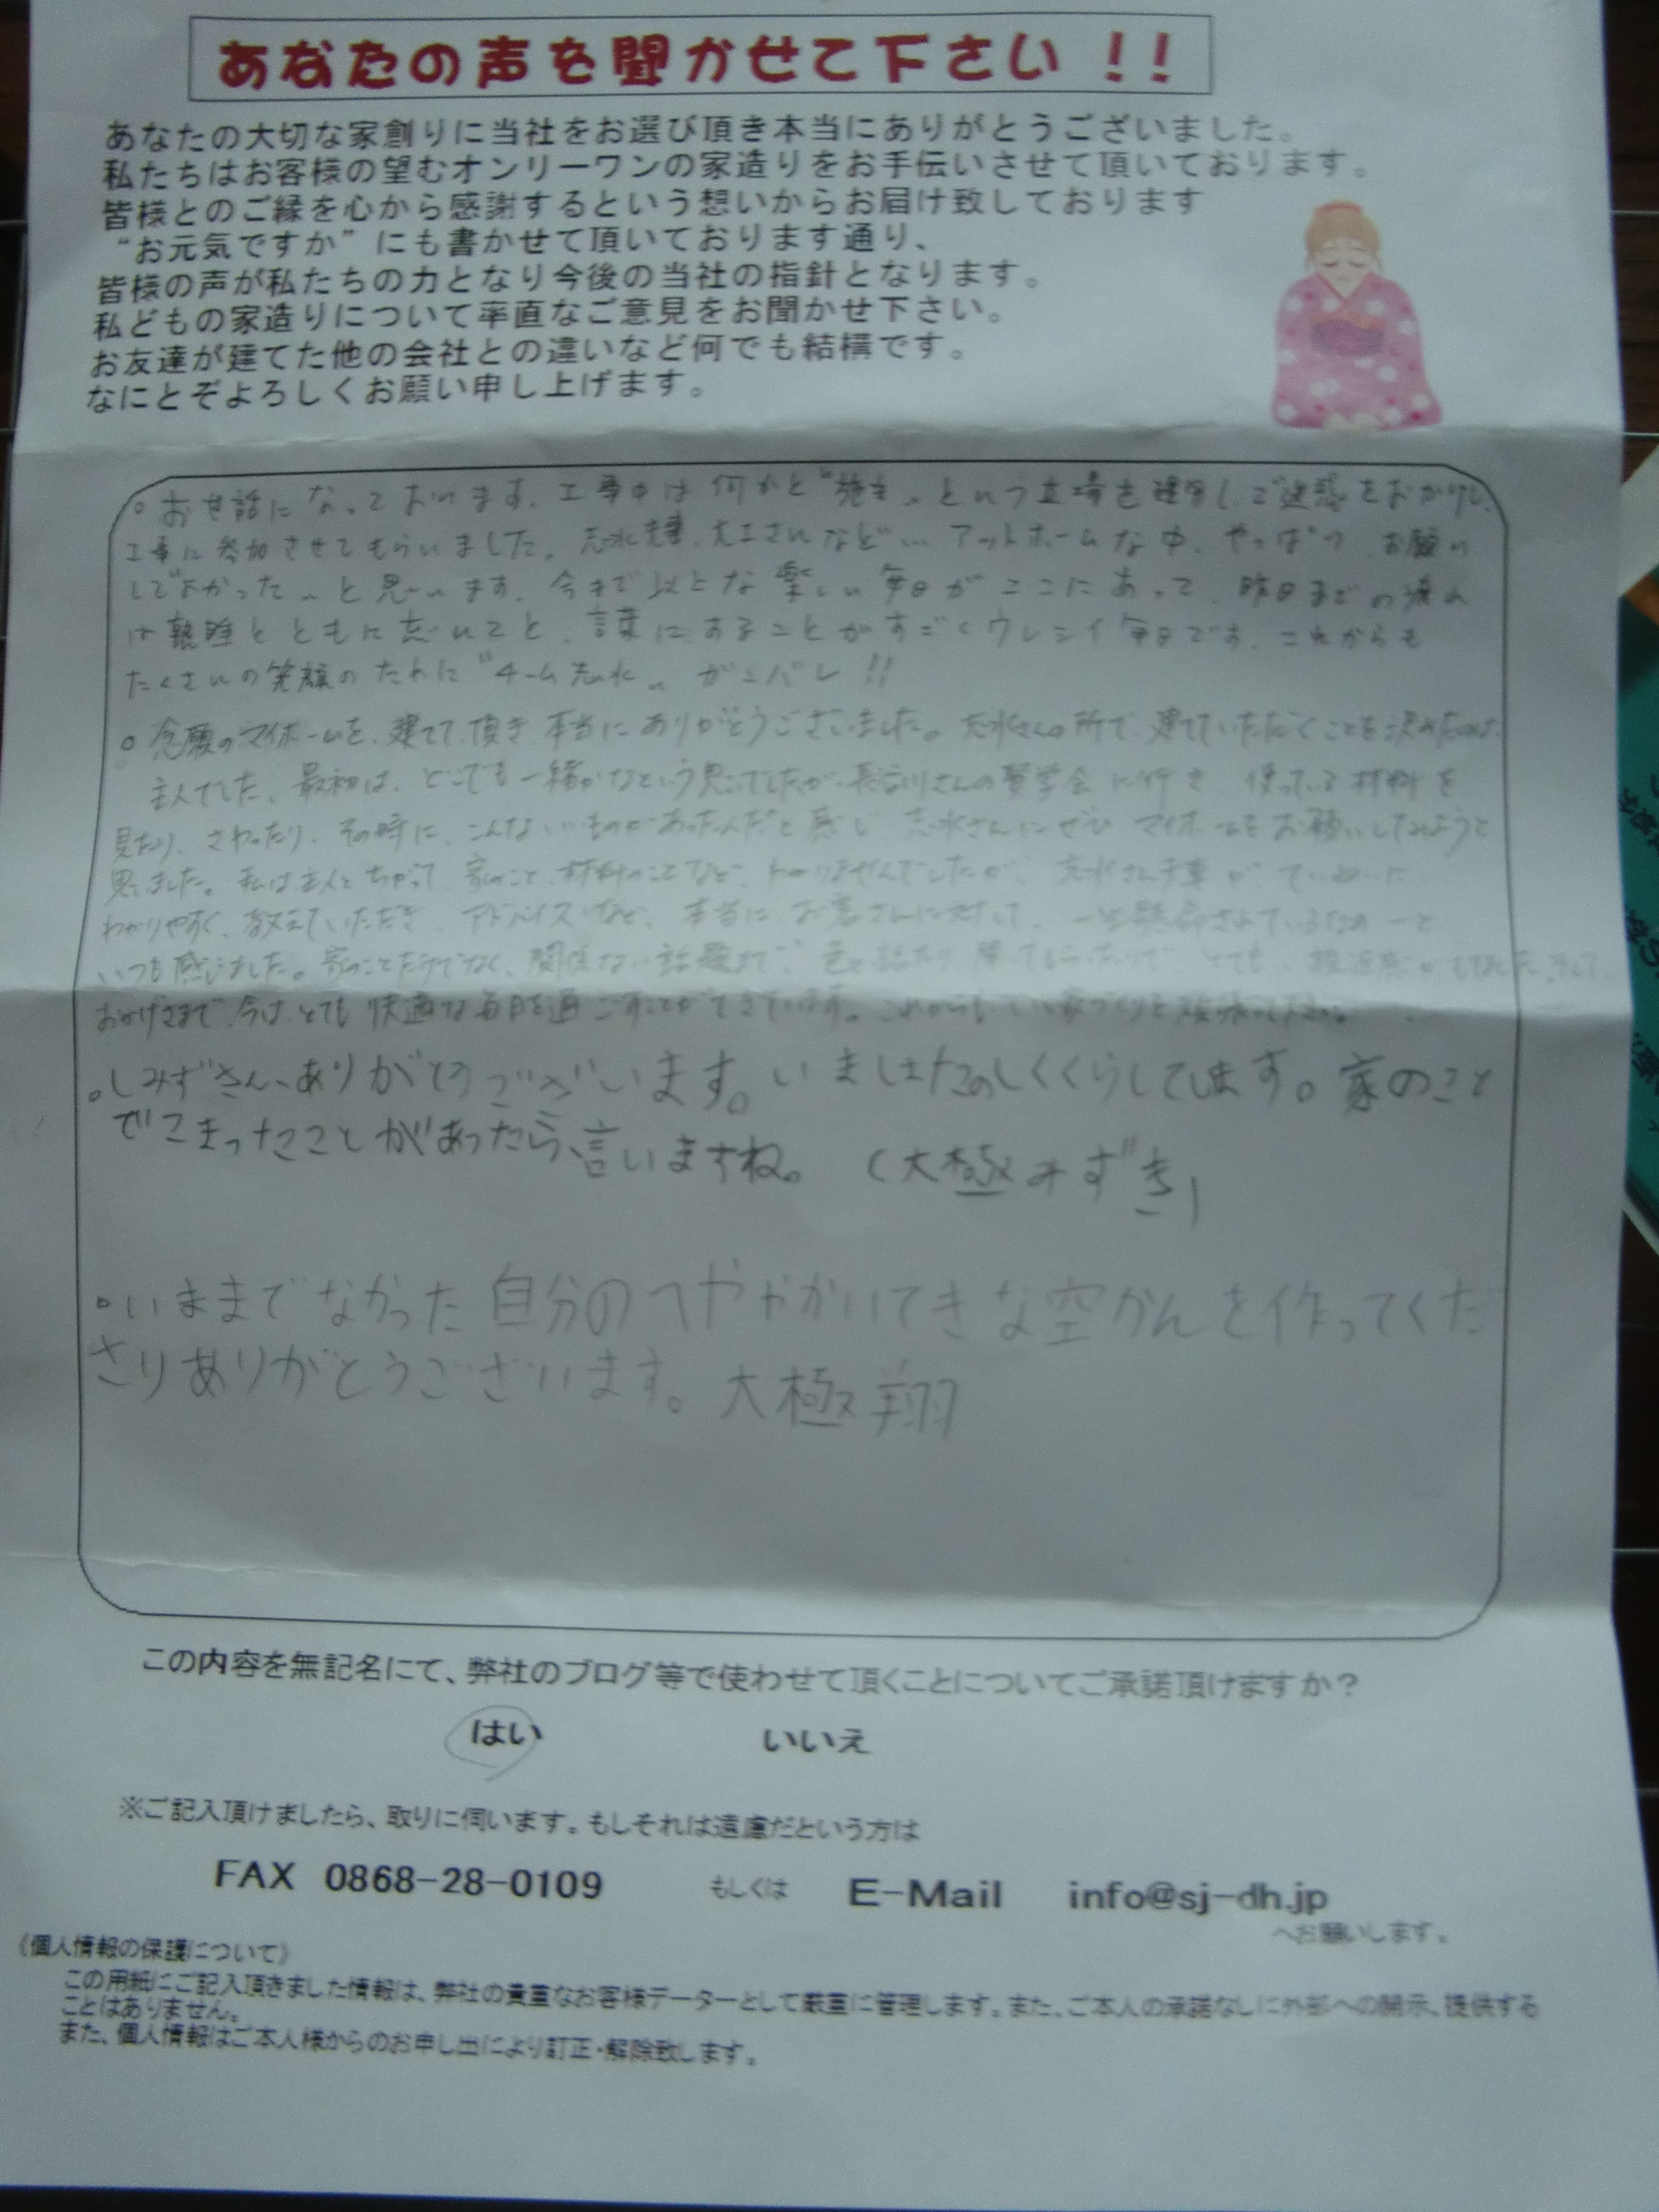 あなたの声を聞かせて下さい!!
あなたの大切な家創りに当社をお選び頂き本当にありがとうございました。
私たちはお客様の望むオンリーワンの家造りをお手伝いさせて頂いております。
皆様とのご縁を心から感謝するという想いからお届け致しております
“お元気ですか”にも書かせて頂いております通り、
皆様の声が私たちの力となり今後の当社の指針となります。
私どもの家造りについて率直なご意見をお聞かせ下さい。
お友達が建てた他の会社との違いなど何でも結構です。
なにとぞよろしくお願い申し上げます。
○お世話になっております。工事中は何かと“施主”という立場を理解しご迷惑をおかけし、
工事に参加させてもらいました。志水専務、大工さんなど…アットホームな中、やっぱり、お願い
してよかった〜と思います。今まで以上な楽しい毎日がここにあって、昨日までの疲れ
は熟睡とともに忘れてと、言葉にすることがすごくウレシイ毎日です。これからも
たくさんの笑顔のために“チーム志水”ガンバレ!!
○念願のマイホームを、建てて、頂き、本当にありがとうございました。志水さんの所で、建てていただくことを決めたのは、
主人でした。最初は、どこでも一緒かなという思いでしたが、長谷川さんの見学会に行き、使っている材料を
見たり、さわったり、その時に、こんないいものがあったんだと感じ、志水さんにぜひマイホームをお願いしてみようと
思いました。私は主人とちがって、家のこと、材料のことなど、わかりませんでしたが、志水さん、専務が、ていねいに
わかりやすく、教えていただき、アドバイスなど、本当に、お客さんに対して、一生懸命されているなぁーと
いつも感じました。家のことだけでなく、関係ない話題まで、色々話たり、聞いてもらったりで とても、親近感がしました。そして、
おかげさまで、今は、とても快適な毎日を過ごすことができています。これからもいい家づくりを頑張って下さい。
○しみずさん、ありがとうございます。いましはたのしくくらしてします。家のこと
でこまったことがあったら、言いますね。(大極みずき)
○いままでなかった自分のへややかいてきな空かんを作ってくだ
さりありがとうございます。大極翔
この内容を無記名にて、弊社のブログ等で使わせて頂くことについてご承諾頂けますか?
はい いいえ
※ご記入頂けましたら、取りに伺います。もしそれは遠慮だという方は
FAX 0868-28-0109 もしくは E-Mail info@sj-dh.jp
へお願いします。
《個人情報の保護について》
この用紙にご記入頂きました情報は、弊社の貴重なお客様データーとして厳重に管理します。また、ご本人の承諾なしに外部への開示、提供する
ことはありません。
また、個人情報はご本人様からのお申し出により訂正・解除致します。